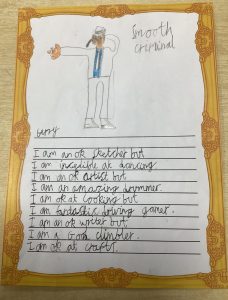 Smooth
Criminal
I am an ok sketcher but
I am incredible at dancing
I am an ok artist but
I am an amazing drummer.
I am ok at cooking but
I am fantastic driving gamer.
I am an ok writer but
I am a good climber.
I am ok at craft.